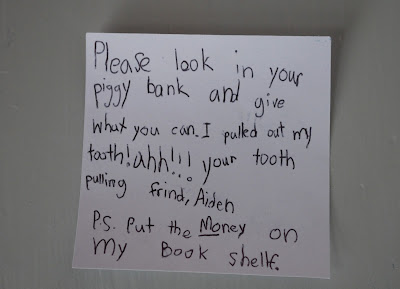 Please look in your
piggy bank and give
what you can. I pulled out my
tooth! ahh!!! your tooth
pulling frind, Aiden
P.S. Put the Money on
my Book shelf.